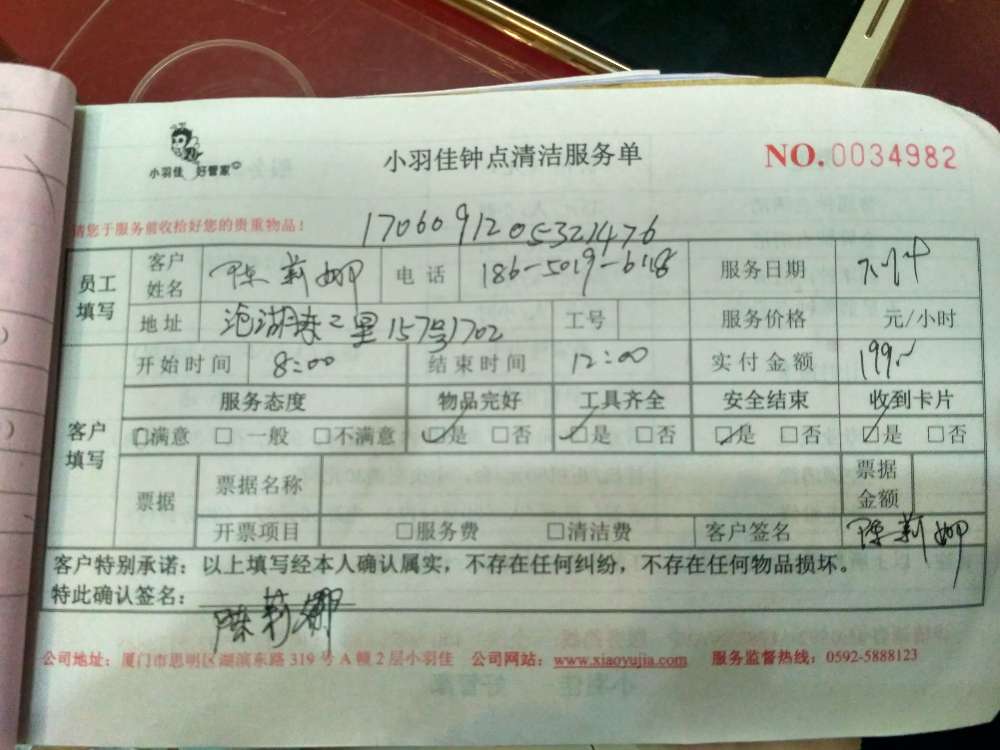 小羽佳 好管家
小羽佳钟点清洁服务单
NO.0034982
请您于服务前收拾好您的贵重物品!
1706091205321476
员工填写 客户姓名 陈莉娜 电话 186-5019-6118 服务日期
地址 157号1702 工号 服务价格 元/小时
客户填写 开始时间 8:00 结束时间 12:00 实付金额 199
服务态度 物品完好 工具齐全 安全结束 收到卡片
☐满意 ☐一般 ☐不满意 ☑是 ☐否 ☑是 ☐否 ☑是 ☐否 ☑是 ☐否
票据 票据名称 票据金额
开票项目 ☐服务费 ☐清洁费 客户签名 陈莉娜
客户特别承诺:以上填写经本人确认属实,不存在任何纠纷,不存在任何物品损坏。
特此确认签名: 陈莉娜
公司地址:厦门市思明区湖滨东路319号A幢2层小羽佳 公司网站:www.xiaoyujia.com 服务监督热线:0592-5888123